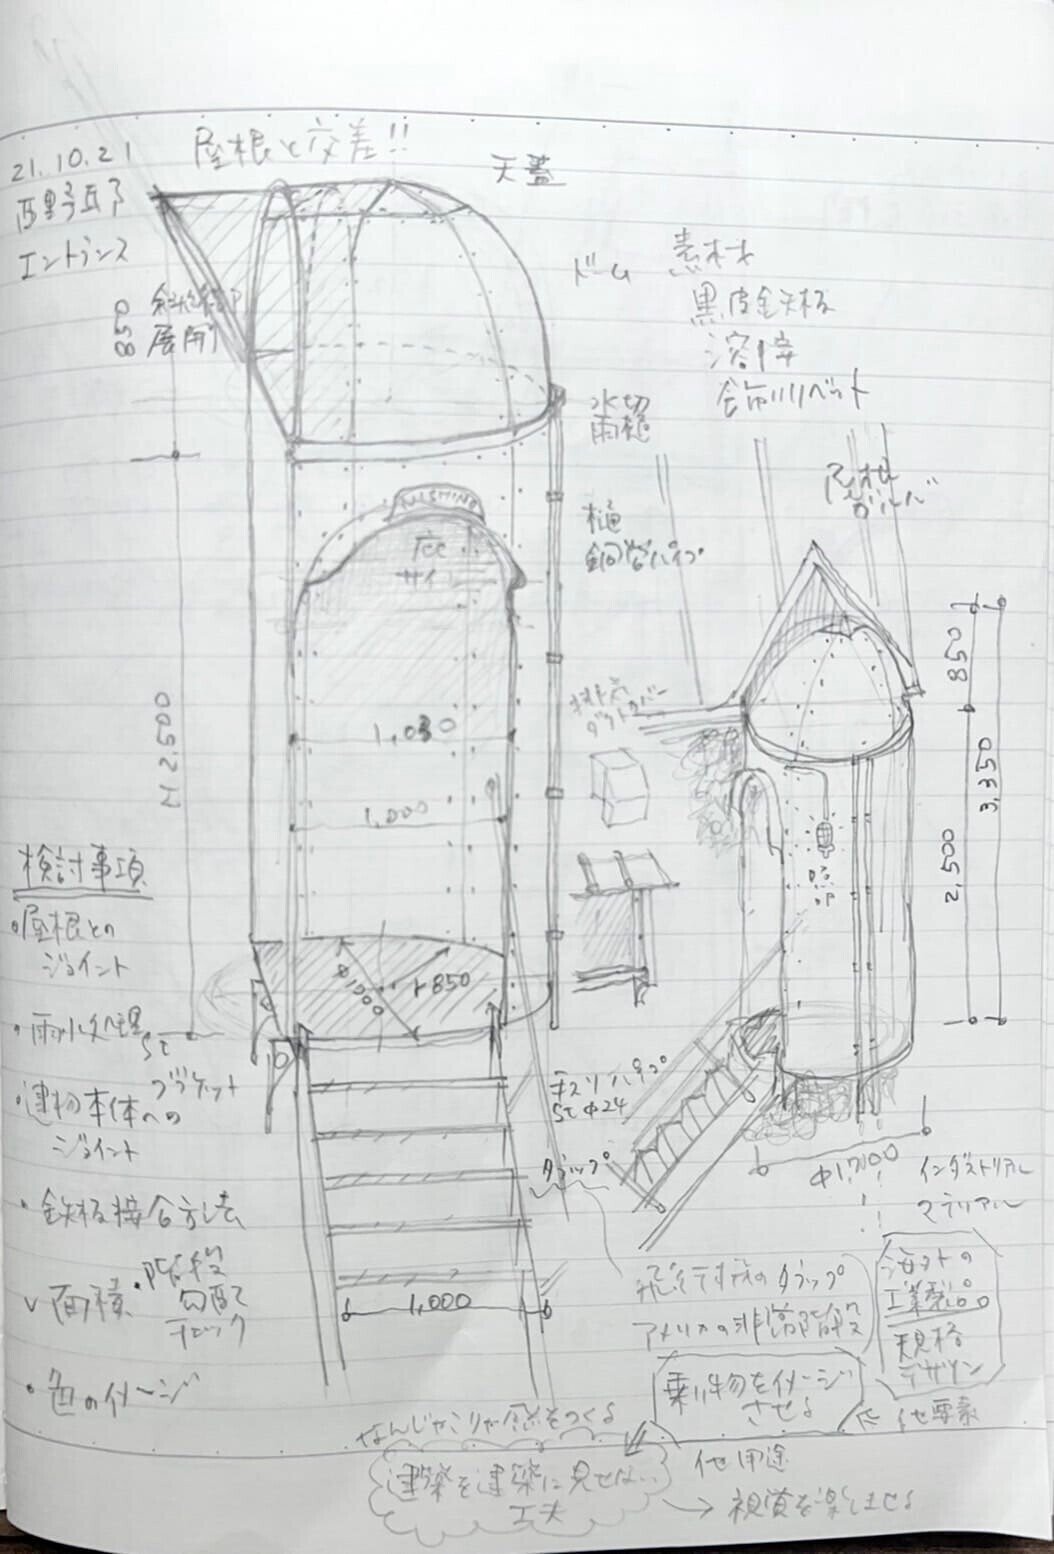 21.10.21
屋根と交差!!
天蓋
西野邸
エントランス
850
展開
ドーム
素材
黒皮鉄板
溶接
飾りリベット
水切
雨樋
樋
鋼管パイプ
NISHINO
庇
サイン
1,030
1,000
H 2,500
φ1,700
r 850
検討事項
・屋根との
ジョイント
・雨水処理
St
ブラケット
・建物本体への
ジョイント
・鉄板接合方法
✓面積
・階段
勾配
チェック
・色のイメージ
1,000
手スリパイプ
St φ24
タラップ
照明
850
2,500
3,350
φ1,700
インダストリアル
マテリアル
飛行機のタラップ
アメリカの非常階段
海外の
工業製品
規格
デザイン
乗り物をイメージ
させる
他要素
なんじゃこりゃ感をつくる
建築を建築に見せない
工夫
他用途
→ 視覚を楽しませる